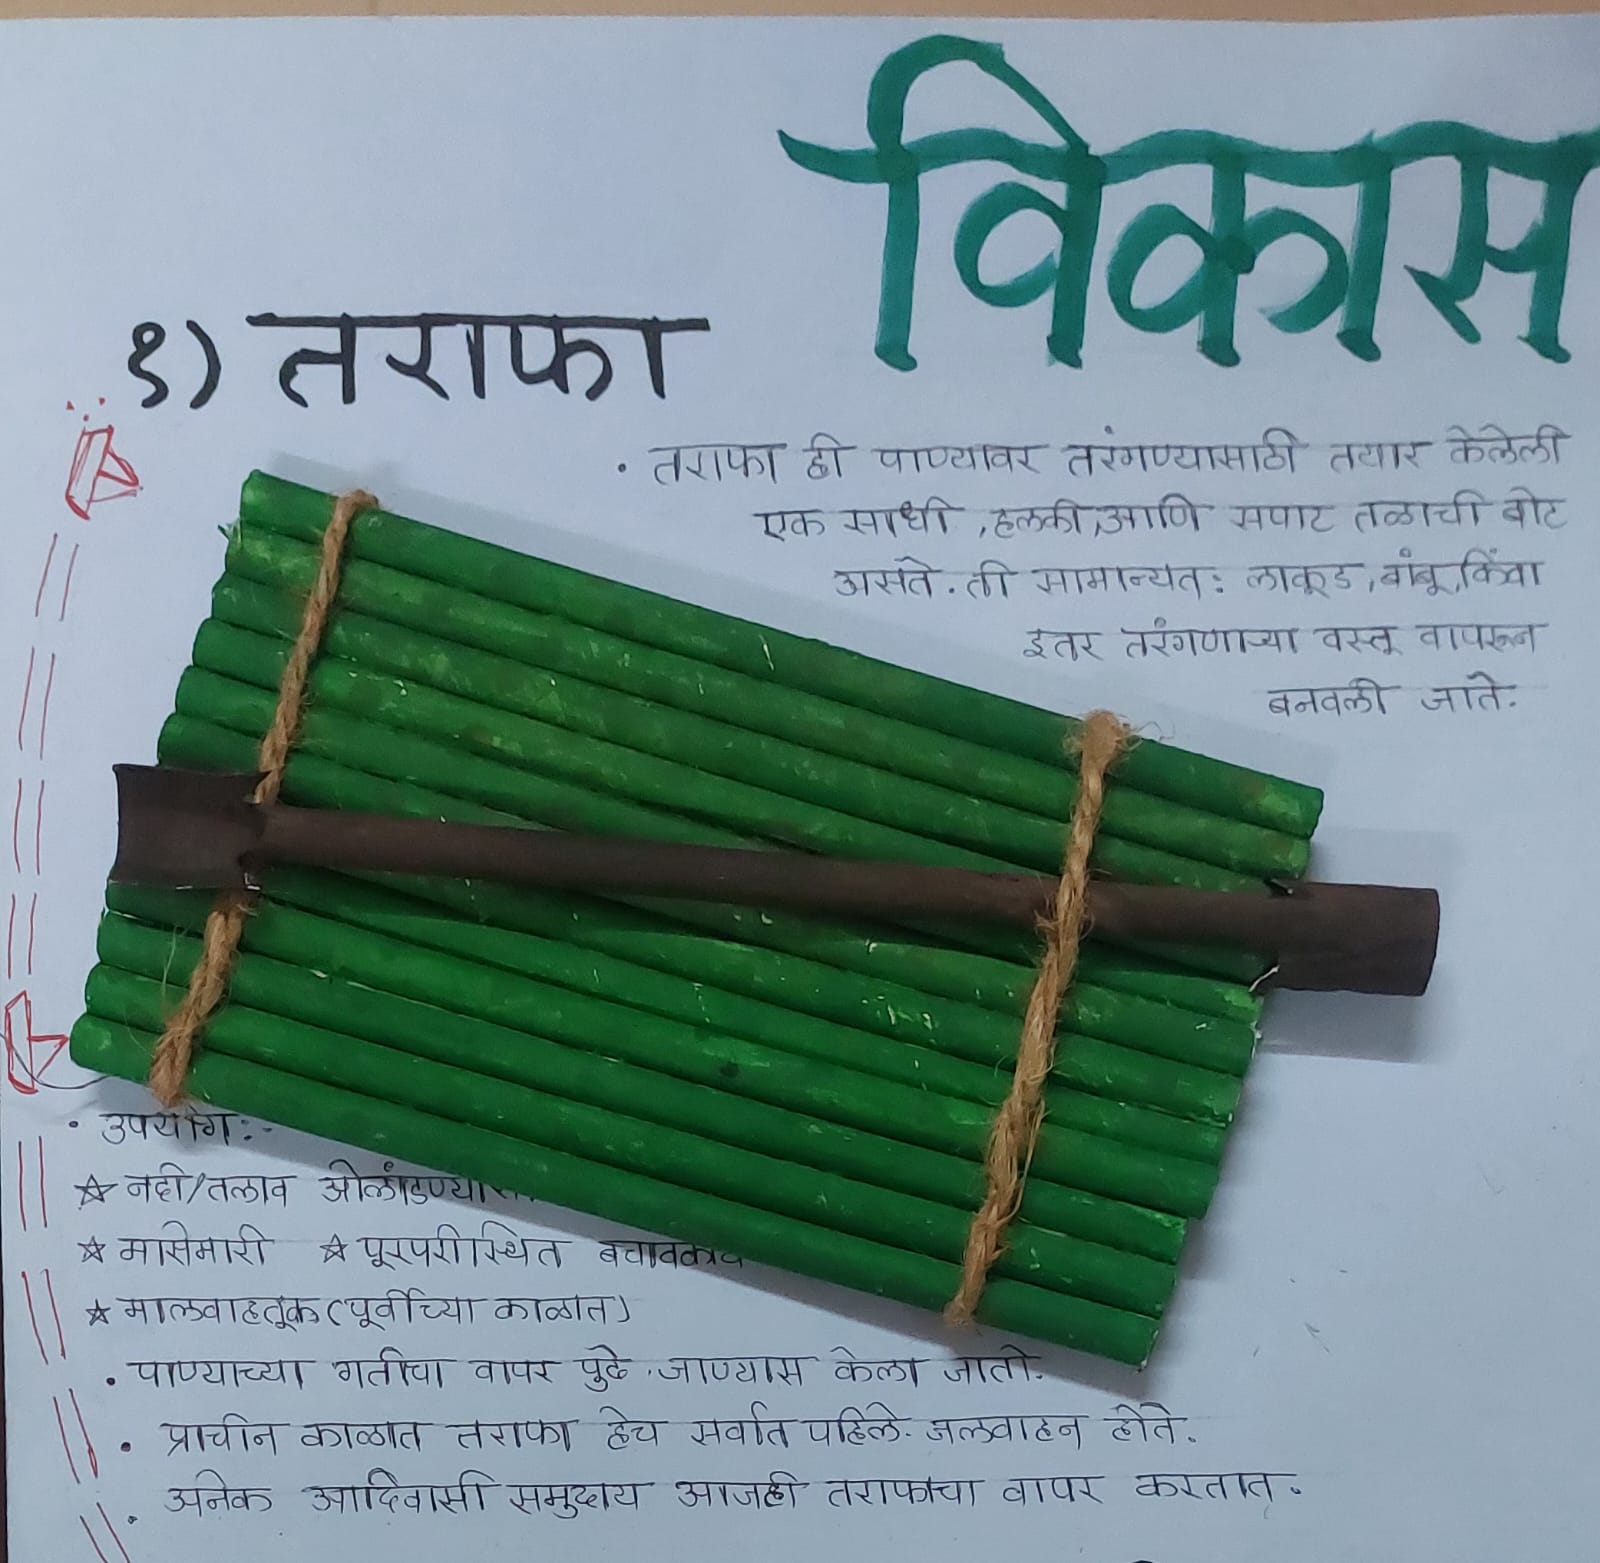 विकास
१) तराफा
• तराफा ही पाण्यावर तरंगण्यासाठी तयार केलेली
एक साधी ,हलकी,आणि सपाट तळाची बोट
असते. ती सामान्यतः लाकूड ,बांबू,किंवा
इतर तरंगणाऱ्या वस्तू वापरून
बनवली जाते.
• उपयोग:-
☆ नदी/तलाव
☆ मासेमारी ☆ पूरपरीस्थित
☆ मालवाहतूक (पूर्वीच्या काळात)
• पाण्याच्या गतीचा वापर पुढे जाण्यास केला जातो.
• प्राचीन काळात तराफा हेच सर्वात पहिले जलवाहन होते.
• अनेक आदिवासी समुदाय आजही तराफाचा वापर करतात.